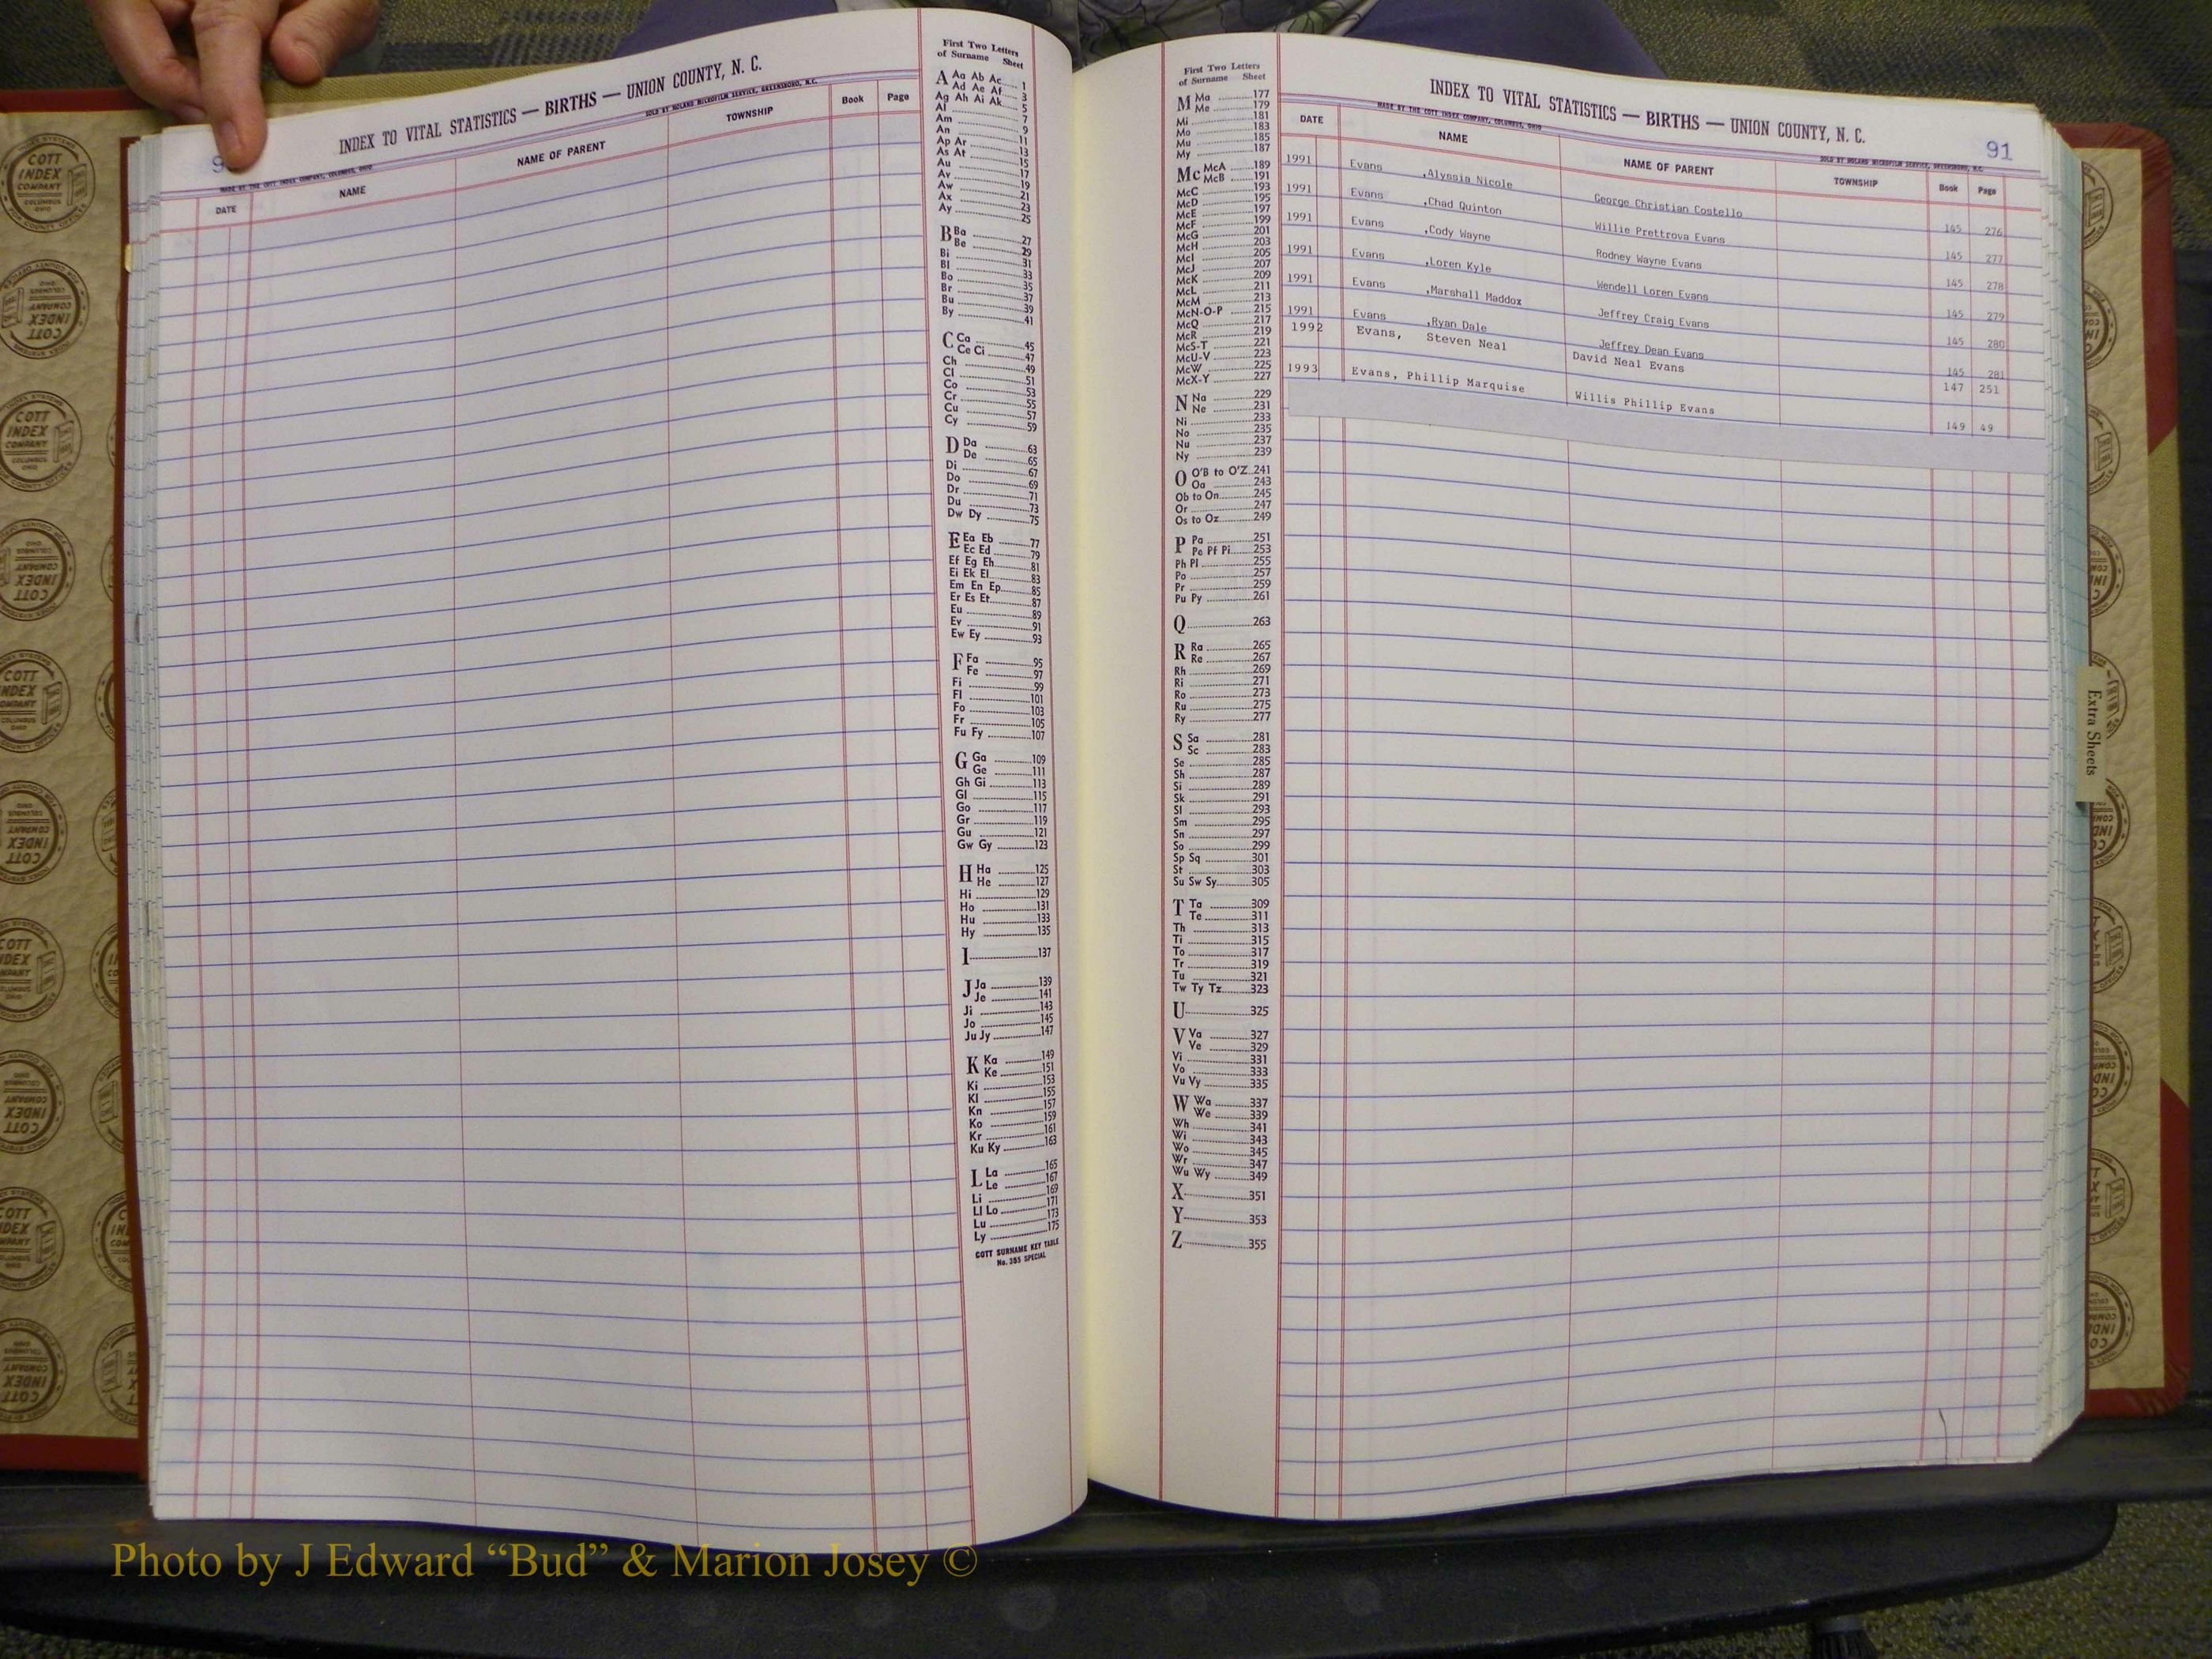 INDEX TO VITAL STATISTICS — BIRTHS — UNION COUNTY, N. C.
MADE BY THE COTT INDEX COMPANY, COLUMBUS, OHIO SOLD BY NOLAND MICROFILM SERVICE, GREENSBORO, N.C.
DATE NAME NAME OF PARENT TOWNSHIP Book Page
First Two Letters
of Surname Sheet
A Aa Ab Ac 1
Ad Ae Af 3
Ag Ah Ai Ak 5
Al 7
Am 9
An 11
Ap Ar 13
As At 15
Au 17
Av 19
Aw 21
Ax 23
Ay 25
B Ba 27
Be 29
Bi 31
Bl 33
Bo 35
Br 37
Bu 39
By 41
C Ca 45
Ce Ci 47
Ch 49
Cl 51
Co 53
Cr 55
Cu 57
Cy 59
D Da 63
De 65
Di 67
Do 69
Dr 71
Du 73
Dw Dy 75
E Ea Eb 77
Ec Ed 79
Ef Eg Eh 81
Ei Ek El 83
Em En Ep 85
Er Es Et 87
Eu 89
Ev 91
Ew Ey 93
F Fa 95
Fe 97
Fi 99
Fl 101
Fo 103
Fr 105
Fu Fy 107
G Ga 109
Ge 111
Gh Gi 113
Gl 115
Go 117
Gr 119
Gu 121
Gw Gy 123
H Ha 125
He 127
Hi 129
Ho 131
Hu 133
Hy 135
I 137
J Ja 139
Je 141
Ji 143
Jo 145
Ju Jy 147
K Ka 149
Ke 151
Ki 153
Kl 155
Kn 157
Ko 159
Kr 161
Ku Ky 163
L La 165
Le 167
Li 169
Ll Lo 171
Lu 173
Ly 175
COTT SURNAME KEY TABLE
No. 355 SPECIAL
First Two Letters
of Surname Sheet
M Ma 177
Me 179
Mi 181
Mo 183
Mu 185
My 187
Mc McA 189
McB 191
McC 193
McD 195
McE 197
McF 199
McG 201
McH 203
McI 205
McJ 207
McK 209
McL 211
McM 213
McN-O-P 215
McQ 217
McR 219
McS-T 221
McU-V 223
McW 225
McX-Y 227
N Na 229
Ne 231
Ni 233
No 235
Nu 237
Ny 239
O O'B to O'Z 241
Oa 243
Ob to On 245
Or 247
Os to Oz 249
P Pa 251
Pe Pf Pi 253
Ph Pl 255
Po 257
Pr 259
Pu Py 261
Q 263
R Ra 265
Re 267
Rh 269
Ri 271
Ro 273
Ru 275
Ry 277
S Sa 281
Sc 283
Se 285
Sh 287
Si 289
Sk 291
Sl 293
Sm 295
Sn 297
So 299
Sp Sq 301
St 303
Su Sw Sy 305
T Ta 309
Te 311
Th 313
Ti 315
To 317
Tr 319
Tu 321
Tw Ty Tz 323
U 325
V Va 327
Ve 329
Vi 331
Vo 333
Vu Vy 335
W Wa 337
We 339
Wh 341
Wi 343
Wo 345
Wr 347
Wu Wy 349
X 351
Y 353
Z 355
INDEX TO VITAL STATISTICS — BIRTHS — UNION COUNTY, N. C.
91
MADE BY THE COTT INDEX COMPANY, COLUMBUS, OHIO SOLD BY NOLAND MICROFILM SERVICE, GREENSBORO, N.C.
DATE NAME NAME OF PARENT TOWNSHIP Book Page
1991 Evans ,Alyssia Nicole George Christian Costello 145 276
1991 Evans ,Chad Quinton Willie Prettrova Evans 145 277
1991 Evans ,Cody Wayne Rodney Wayne Evans 145 278
1991 Evans ,Loren Kyle Wendell Loren Evans 145 279
1991 Evans ,Marshall Maddox Jeffrey Craig Evans 145 280
1991 Evans ,Ryan Dale Jeffrey Dean Evans 145 281
1992 Evans, Steven Neal David Neal Evans 147 251
1993 Evans, Phillip Marquise Willis Phillip Evans 149 49
Extra Sheets
COTT INDEX COMPANY
Photo by J Edward “Bud” & Marion Josey ©